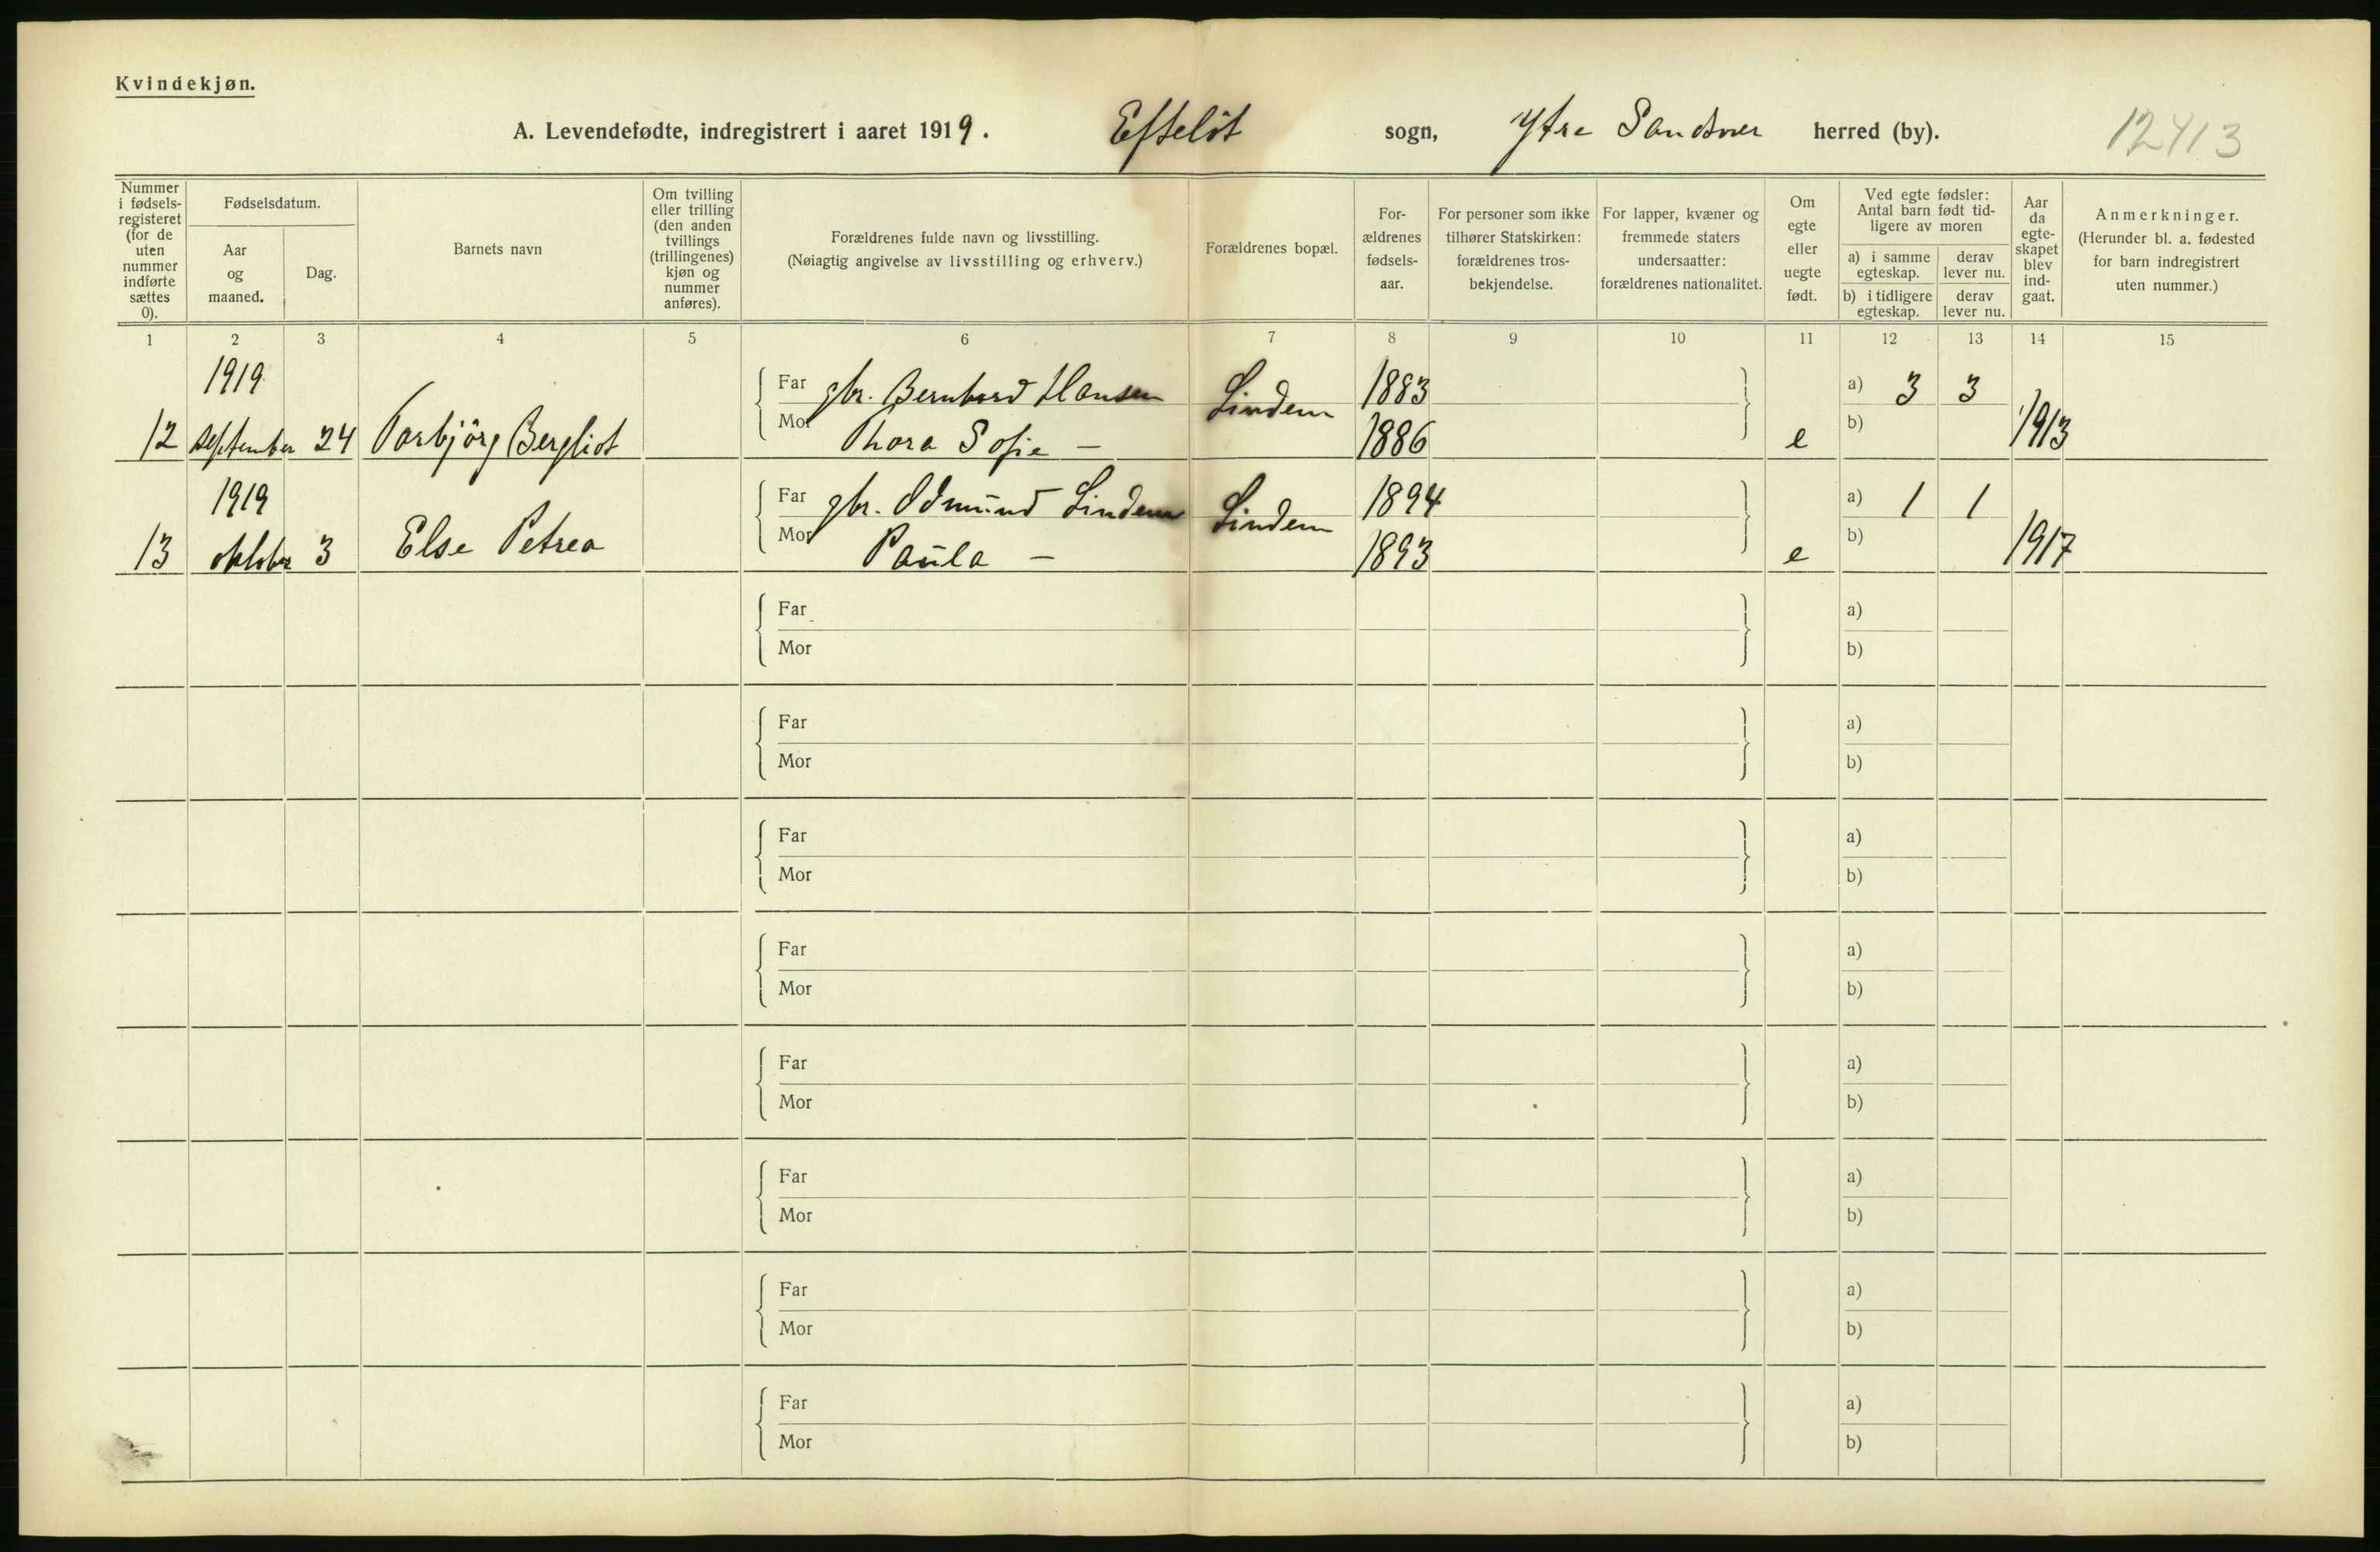 Kvindekjøn.
A. Levendefødte, indregistrert i aaret 1919. Efteløt sogn, Ytre Sandsvær herred (by). 12413
Nummer i fødsels- registeret (for de uten nummer indførte sættes 0).
Fødselsdatum.
Aar og maaned.
Dag.
Barnets navn
Om tvilling eller trilling (den anden tvillings (trillingenes) kjøn og nummer anføres).
Forældrenes fulde navn og livsstilling.
(Nøiagtig angivelse av livsstilling og erhverv.)
Forældrenes bopæl.
For- ældrenes fødsels- aar.
For personer som ikke tilhører Statskirken: forældrenes tros- bekjendelse.
For lapper, kvæner og fremmede staters undersaatter: forældrenes nationalitet.
Om egte eller uegte født.
Ved egte fødsler: Antal barn født tid- ligere av moren
a) i samme egteskap.
derav lever nu.
b) i tidligere egteskap.
derav lever nu.
Aar da egte- skapet blev ind- gaat.
Anmerkninger.
(Herunder bl. a. fødested for barn indregistrert uten nummer.)
1 2 3 4 5 6 7 8 9 10 11 12 13 14 15
1919 Far gbr. Bernhard Hansen Lindem 1883 a) 3 3
12 september 24 Torbjörg Bergliot Mor Thora Sofie — 1886 e b) 1913
1919 Far gbr. Odmund Lindem Lindem 1894 a) 1 1
13 oktober 3 Else Petrea Mor Paula — 1893 e b) 1917
Far a)
Mor b)
Far a)
Mor b)
Far a)
Mor b)
Far a)
Mor b)
Far a)
Mor b)
Far a)
Mor b)
Far a)
Mor b)
Far a)
Mor b)